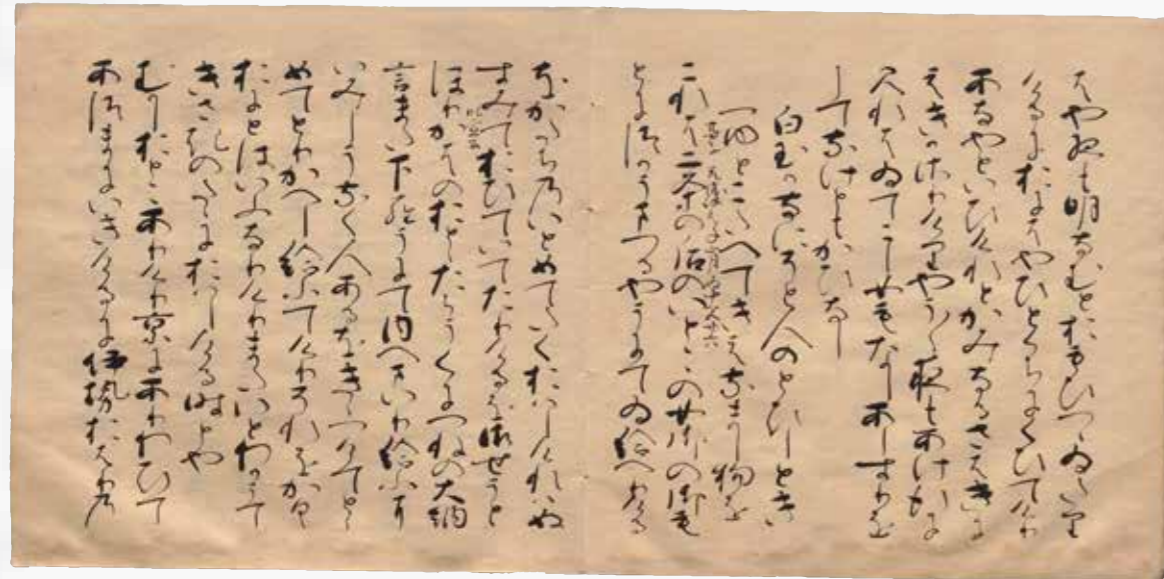 はや夜も明なむとおもひつゝゐたり
けるにおにはやひとくちにくひてけり
あるやといひけれとかみなるさはきに
えきかさりけりやう〳〵夜もあけゆくに
みれはゐてこし女もなしあしすりを
してなけともかひなし
白玉かなにそと人のとひしとき
つゆとこたへてきえなまし物を
これは二条の后のいとこの女御の御も
とにつかうまつるやうにてゐ給へりける
をかたちのいとめてたくおはしけれはぬ
すみておひていてたりけるを御せうと
ほりかはのおとゝたらうくにつねの大納
言また下らうにて内へまいり給ふに
いみしうなく人あるをきゝつけてとゝ
めてとりかへし給ふてけりそれをかく
おにとはいふなりけりまたいとわかうて
きさきのたゝにおはしける時とや
むかしおとこありけり京にありわひて
あつまにいきけるに伊勢おはりの